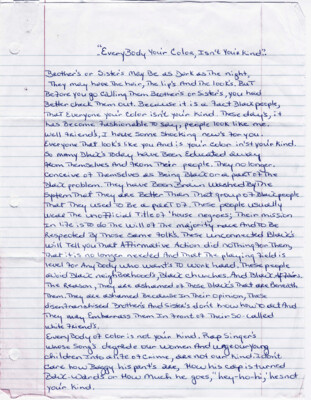 "EveryBody Your Color, Isn't Your Kind".
Brother's or Sister's May Be as Dark as The night,
They may have The hair, The lip's And The looks, But
Before you go Calling Them Brother's or Sister's, you had
Better check Them out. Because it is a Fact Black people,
That Everyone your Color isn't your kind. These day's, it
has Become Fashionable To say, people look like me.
Well Friend's, I have some Shocking new's for you.
Everyone That look's like you And is your Color isn't your kind.
So many Black's today have Been Educated away
From Themselves And From Their people. They no longer
Conceive of Themselves as Being Black or a part of The
Black problem. They have Been Brain Washed By The
System That They are Better Then That group of Black people
That They used To Be a part of. These people usually
wear The unofficial Title of 'house negroes; Their mission
in life is To do The will of The majority race And To Be
Respected By Those same Folk's. These unconnected Black's
will Tell you That Affirmative Action did nothing for Them,
that it is no longer needed And That The playing field is
level for Any body who want's To work hard. These people
avoid Black neighborhood's, Black churches. And Black Affairs.
The Reason, They are ashamed of Those Black's that are Beneath
Them. They are ashamed Because In Their Opinion, These
disenfranchised Brother's And Sister's don't know how To act And
They may Embarrass Them In Front of Their So-Called
white Friend's.
Every Body of Color is not your Kind. Rap Singer's
whose Song's degrade our Women And urge our young
children Into a life of Crime, are not our Kind. I don't
Care how Baggy his pant's are, How his cap is turned
Back-wards or How Much he goes, 'hey-ho-hi,' he's not
your Kind.